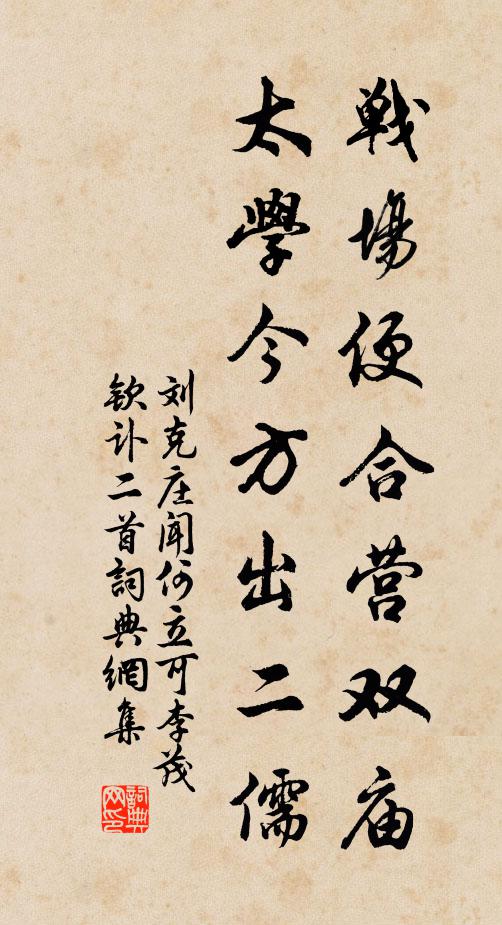 戰場便合营双庙
太學今方出二儒
刘克庄闻何立可李茂
钦讣二首詞典網集
詞典网印